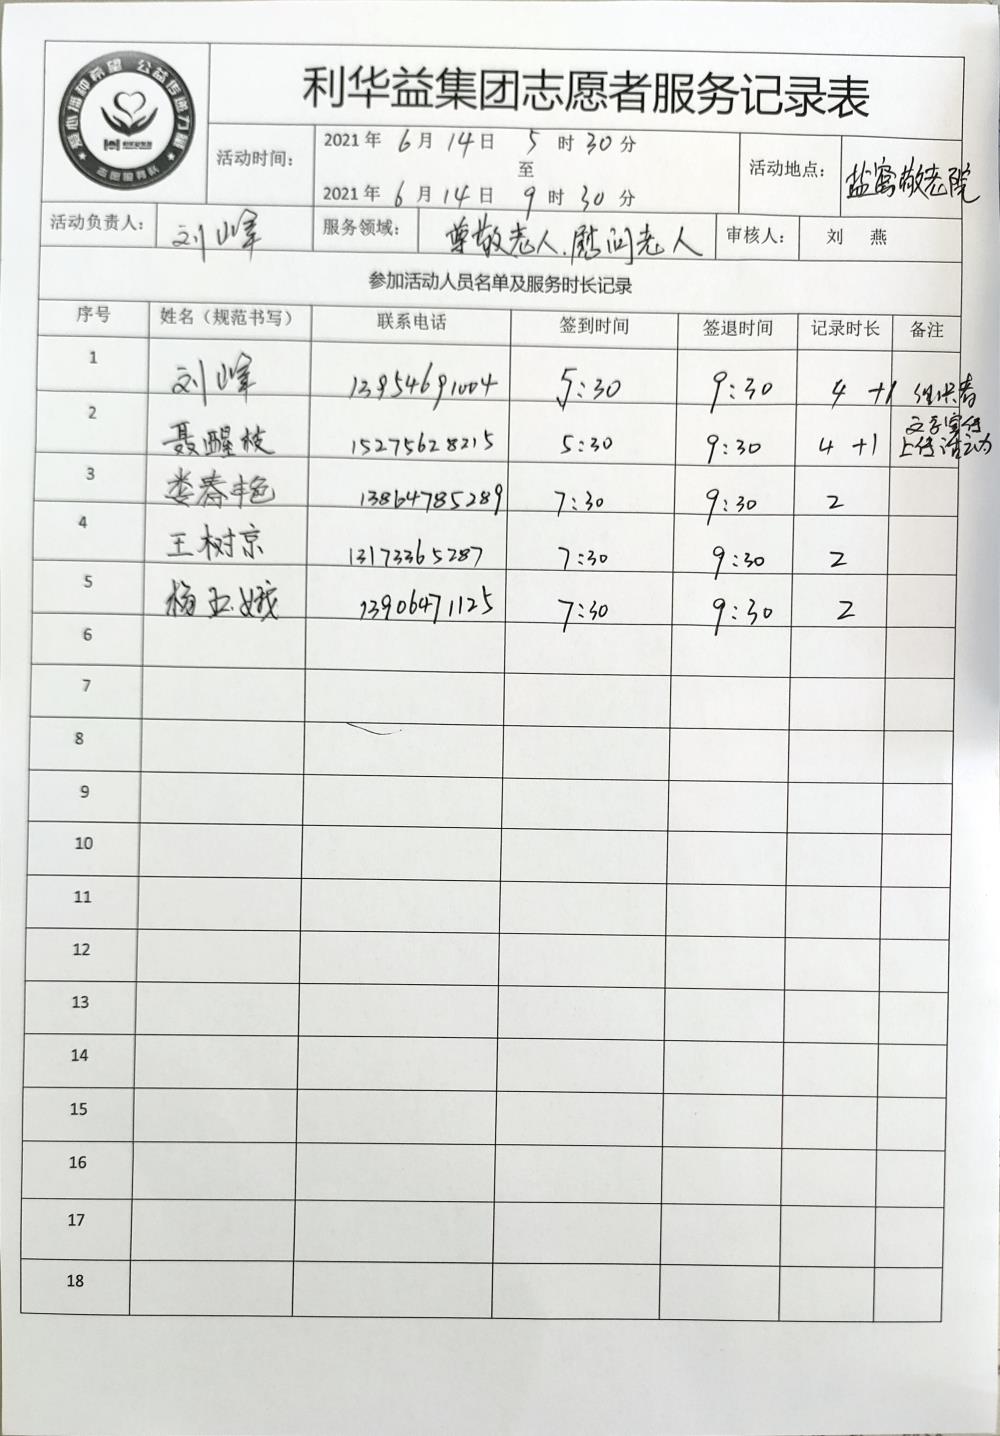 爱心播种希望 公益传递力量
志愿服务队
利华益集团志愿者服务记录表
活动时间： 2021年 6月 14日 5 时 30分
至
2021年 6月 14日 9 时 30 分
活动地点： 盐窝敬老院
活动负责人： 刘峰 服务领域： 尊敬老人、慰问老人 审核人： 刘 燕
参加活动人员名单及服务时长记录
序号 姓名（规范书写） 联系电话 签到时间 签退时间 记录时长 备注
1 刘峰 13954691004 5:30 9:30 4 +1 组织者
2 聂醒枝 15275628215 5:30 9:30 4 +1 文字宣传
上传活动
3 娄春艳 13864785289 7:30 9:30 2
4 王树京 13173365287 7:30 9:30 2
5 杨玉娥 13906471125 7:30 9:30 2
6
7
8
9
10
11
12
13
14
15
16
17
18